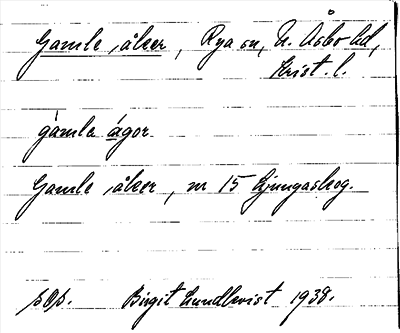 Gamle åker, Rya sn, N. Åsbo hd,
Krist. l.
gamla ågor.
Gamle åker, nr 15 Ljungaskog.
Birgit Lundkvist 1938.